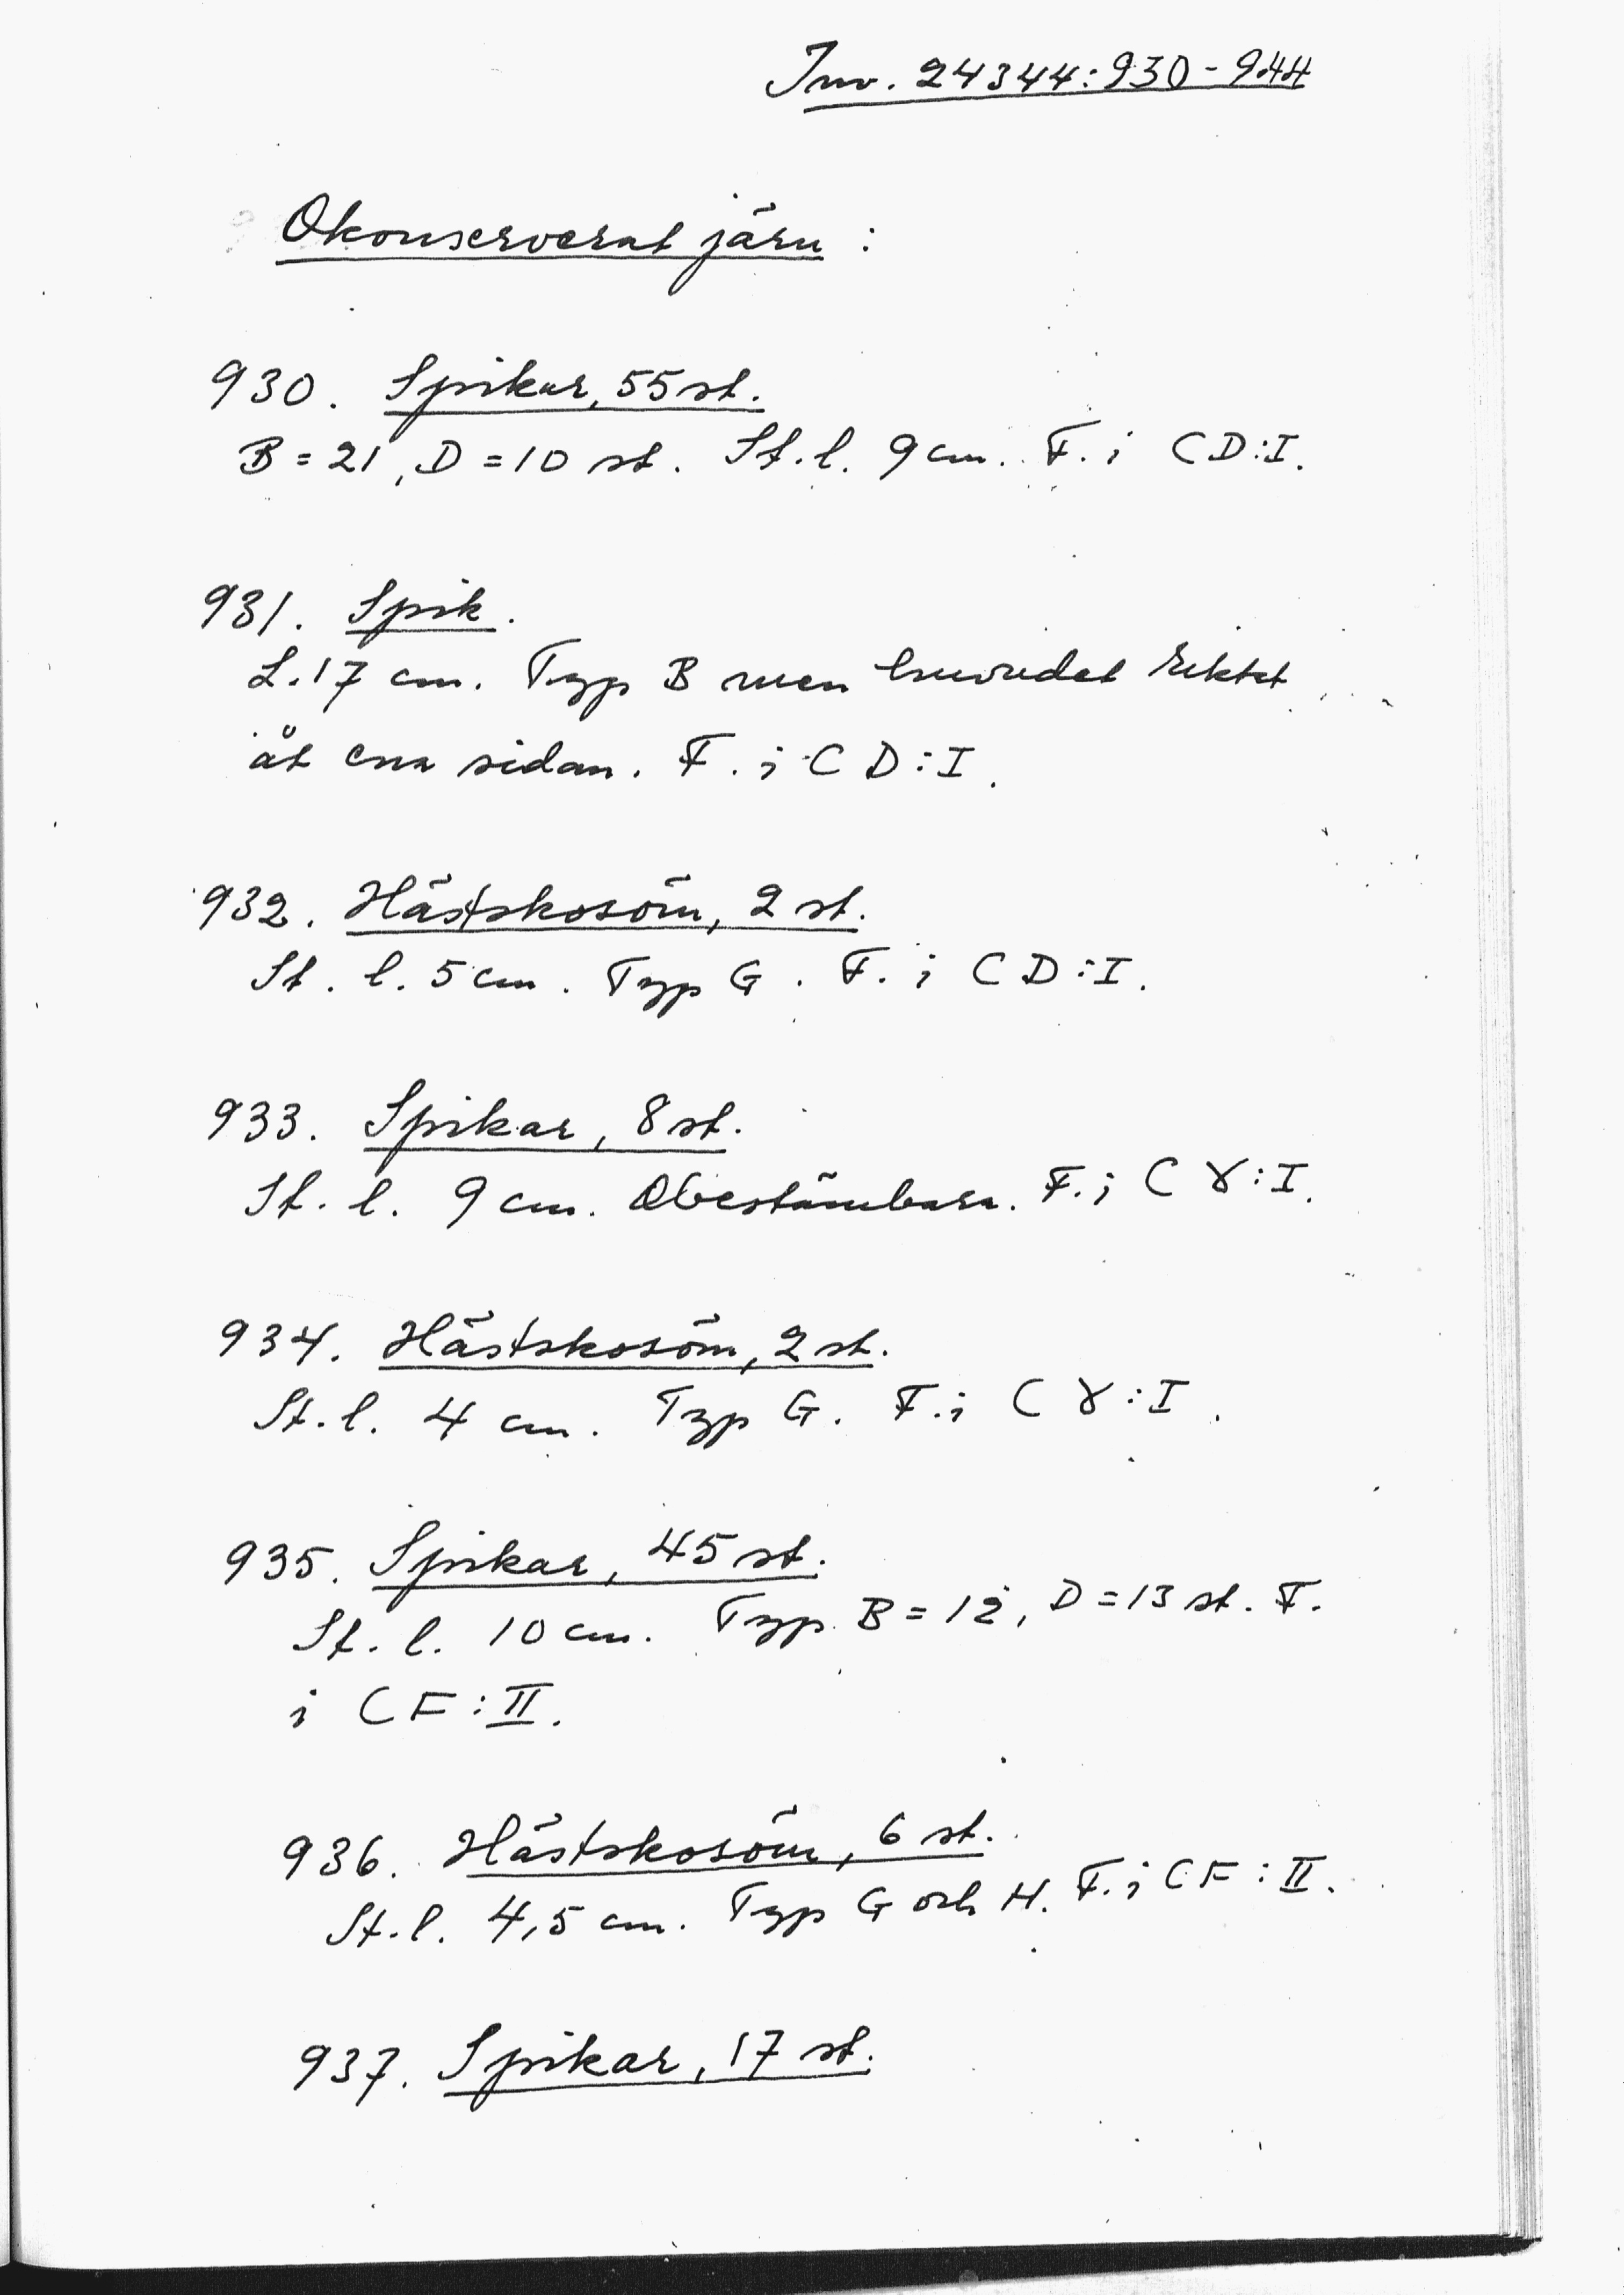 Inv. 24344:930-944
Okonserverat järn :
930. Spikar, 55 st.
B = 21, D = 10 st. St. l. 9 cm. F. i CD:I.
931. Spik.
L. 17 cm. Typ B men huvudet riktat
åt ena sidan. F. i CD:I.
932. Hästskosöm, 2 st.
St. l. 5 cm. Typ G. F. i CD:I.
933. Spikar, 8 st.
St. l. 9 cm. Obestämbara. F. i C ɣ:I.
934. Hästskosöm, 2 st.
St. l. 4 cm. Typ G. F. i C ɣ:I.
935. Spikar, 45 st.
St. l. 10 cm. Typ B = 12, D = 13 st. F.
i CF:II.
936. Hästskosöm, 6 st.
St. l. 4,5 cm. Typ G och H. F. i CF:II.
937. Spikar, 17 st.